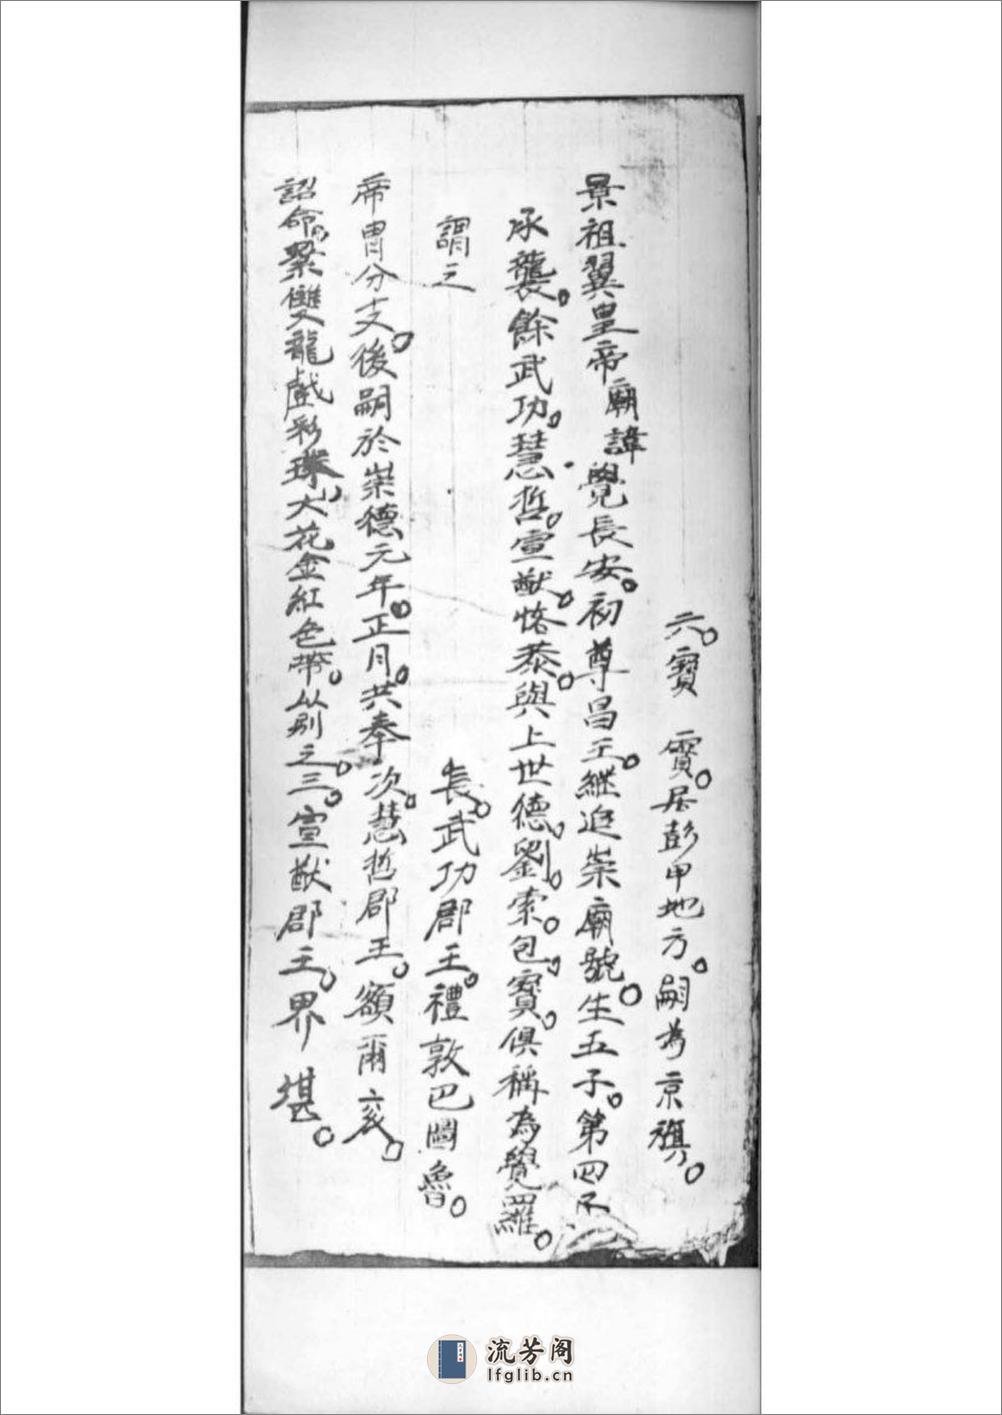 六。寶 實。居彭甲地方。嗣為京旗。
景祖翼皇帝廟諱覺長安。初尊昌王。繼追崇廟號。生五子。第四不
承襲。餘武功。慧哲。宣猷。恪恭。與上世德。劉。索。包。寶。俱稱為覺羅。
謂之 長。武功郡王。禮敦巴圖魯。
帝冑分支。後嗣於崇德元年。正月。共奉 次。慧哲郡王。額爾袞。
詔命。繫雙龍戲彩珠。大花金紅色帶。以別之。三。宣猷郡王。界堪。
流芳阁
lfglib.cn